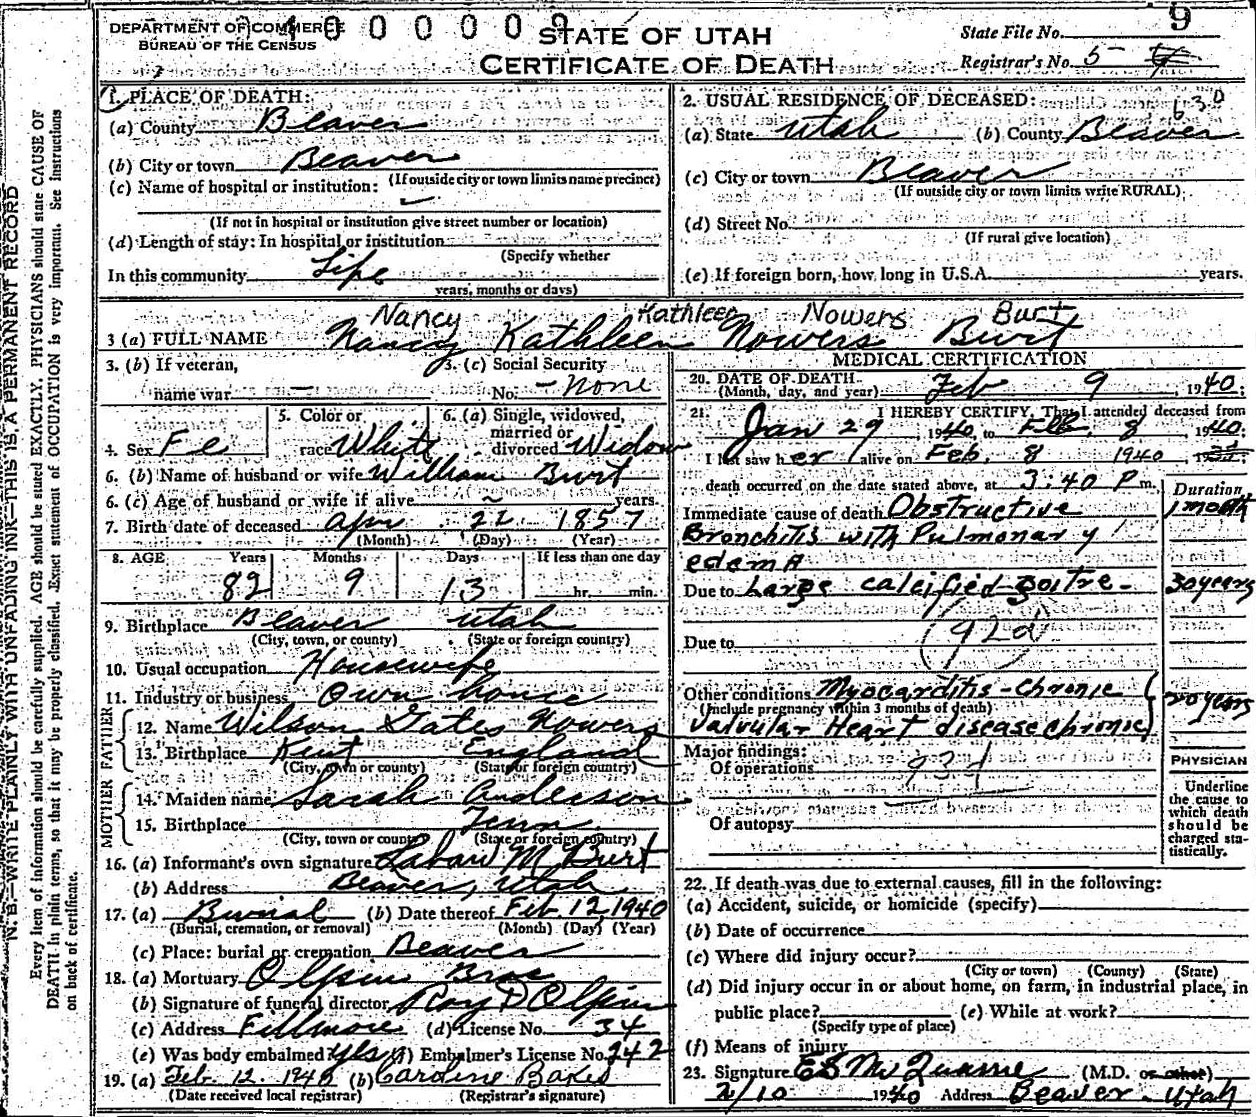 DEPARTMENT OF COMMERCE
BUREAU OF THE CENSUS
STATE OF UTAH
CERTIFICATE OF DEATH
State File No. 9
Registrar's No. 5
N.B.—WRITE PLAINLY WITH UNFADING INK—THIS IS A PERMANENT RECORD
Every item of information should be carefully supplied. AGE should be stated EXACTLY. PHYSICIANS should state CAUSE OF
DEATH in plain terms, so that it may be properly classified. Exact statement of OCCUPATION is very important. See Instructions
on back of certificate.
1. PLACE OF DEATH:
(a) County Beaver
(b) City or town Beaver
(If outside city or town limits name precinct)
(c) Name of hospital or institution:
(If not in hospital or institution give street number or location)
(d) Length of stay: In hospital or institution
(Specify whether
In this community Life
years, months or days)
2. USUAL RESIDENCE OF DECEASED:
630
(a) State Utah (b) County Beaver
(c) City or town Beaver
(If outside city or town limits write RURAL)
(d) Street No.
(If rural give location)
(e) If foreign born, how long in U.S.A. years.
Nancy Kathleen Nowers Burt
3 (a) FULL NAME Nancy Kathleen Nowers Burt
3. (b) If veteran,
name war —
3. (c) Social Security
No. - None
4. Sex Fe
5. Color or
race White
6. (a) Single, widowed,
married or
divorced Widow
6. (b) Name of husband or wife William Burt
6. (c) Age of husband or wife if alive years.
7. Birth date of deceased Apr 22 1857
(Month) (Day) (Year)
8. AGE Years Months Days If less than one day
82 9 13 hr. min.
9. Birthplace Beaver Utah
(City, town, or county) (State or foreign country)
10. Usual occupation Housewife
11. Industry or business Own home
FATHER
12. Name Wilson Gates Nowers
13. Birthplace Kent England
(City, town or county) (State or foreign country)
MOTHER
14. Maiden name Sarah Anderson
15. Birthplace Tenn
(City, town or county) (State or foreign country)
16. (a) Informant's own signature Laban M Burt
(b) Address Beaver, Utah
17. (a) Burial (b) Date thereof Feb 12, 1940
(Burial, cremation, or removal) (Month) (Day) (Year)
(c) Place: burial or cremation Beaver
18. (a) Mortuary Olpin Bros
(b) Signature of funeral director Roy D Olpin
(c) Address Fillmore (d) License No. 34
(e) Was body embalmed? Yes (f) Embalmer's License No. 242
19. (a) Feb. 12. 1940 (b) Caroline Bakes
(Date received local registrar) (Registrar's signature)
MEDICAL CERTIFICATION
20. DATE OF DEATH Feb 9 1940;
(Month, day, and year)
21. I HEREBY CERTIFY, That I attended deceased from
Jan 29, 1940, to Feb. 8 1940.
I last saw her alive on Feb. 8 1940
death occurred on the date stated above, at 3:40 P m.
Duration
Immediate cause of death Obstructive 1 month
Bronchitis with Pulmonary
edema
Due to Large calcified goitre - 30 years
92d
Due to
Other conditions Myocarditis - Chronic
(Include pregnancy within 3 months of death)
Valvular Heart disease chronic 20 years
Major findings:
Of operations 93d
Of autopsy
PHYSICIAN
Underline
the cause to
which death
should be
charged sta-
tistically.
22. If death was due to external causes, fill in the following:
(a) Accident, suicide, or homicide (specify)
(b) Date of occurrence
(c) Where did injury occur?
(City or town) (County) (State)
(d) Did injury occur in or about home, on farm, in industrial place, in
public place? (e) While at work?
(Specify type of place)
(f) Means of injury
23. Signature (M.D. or other)
2/10 1940 Address Beaver - Utah